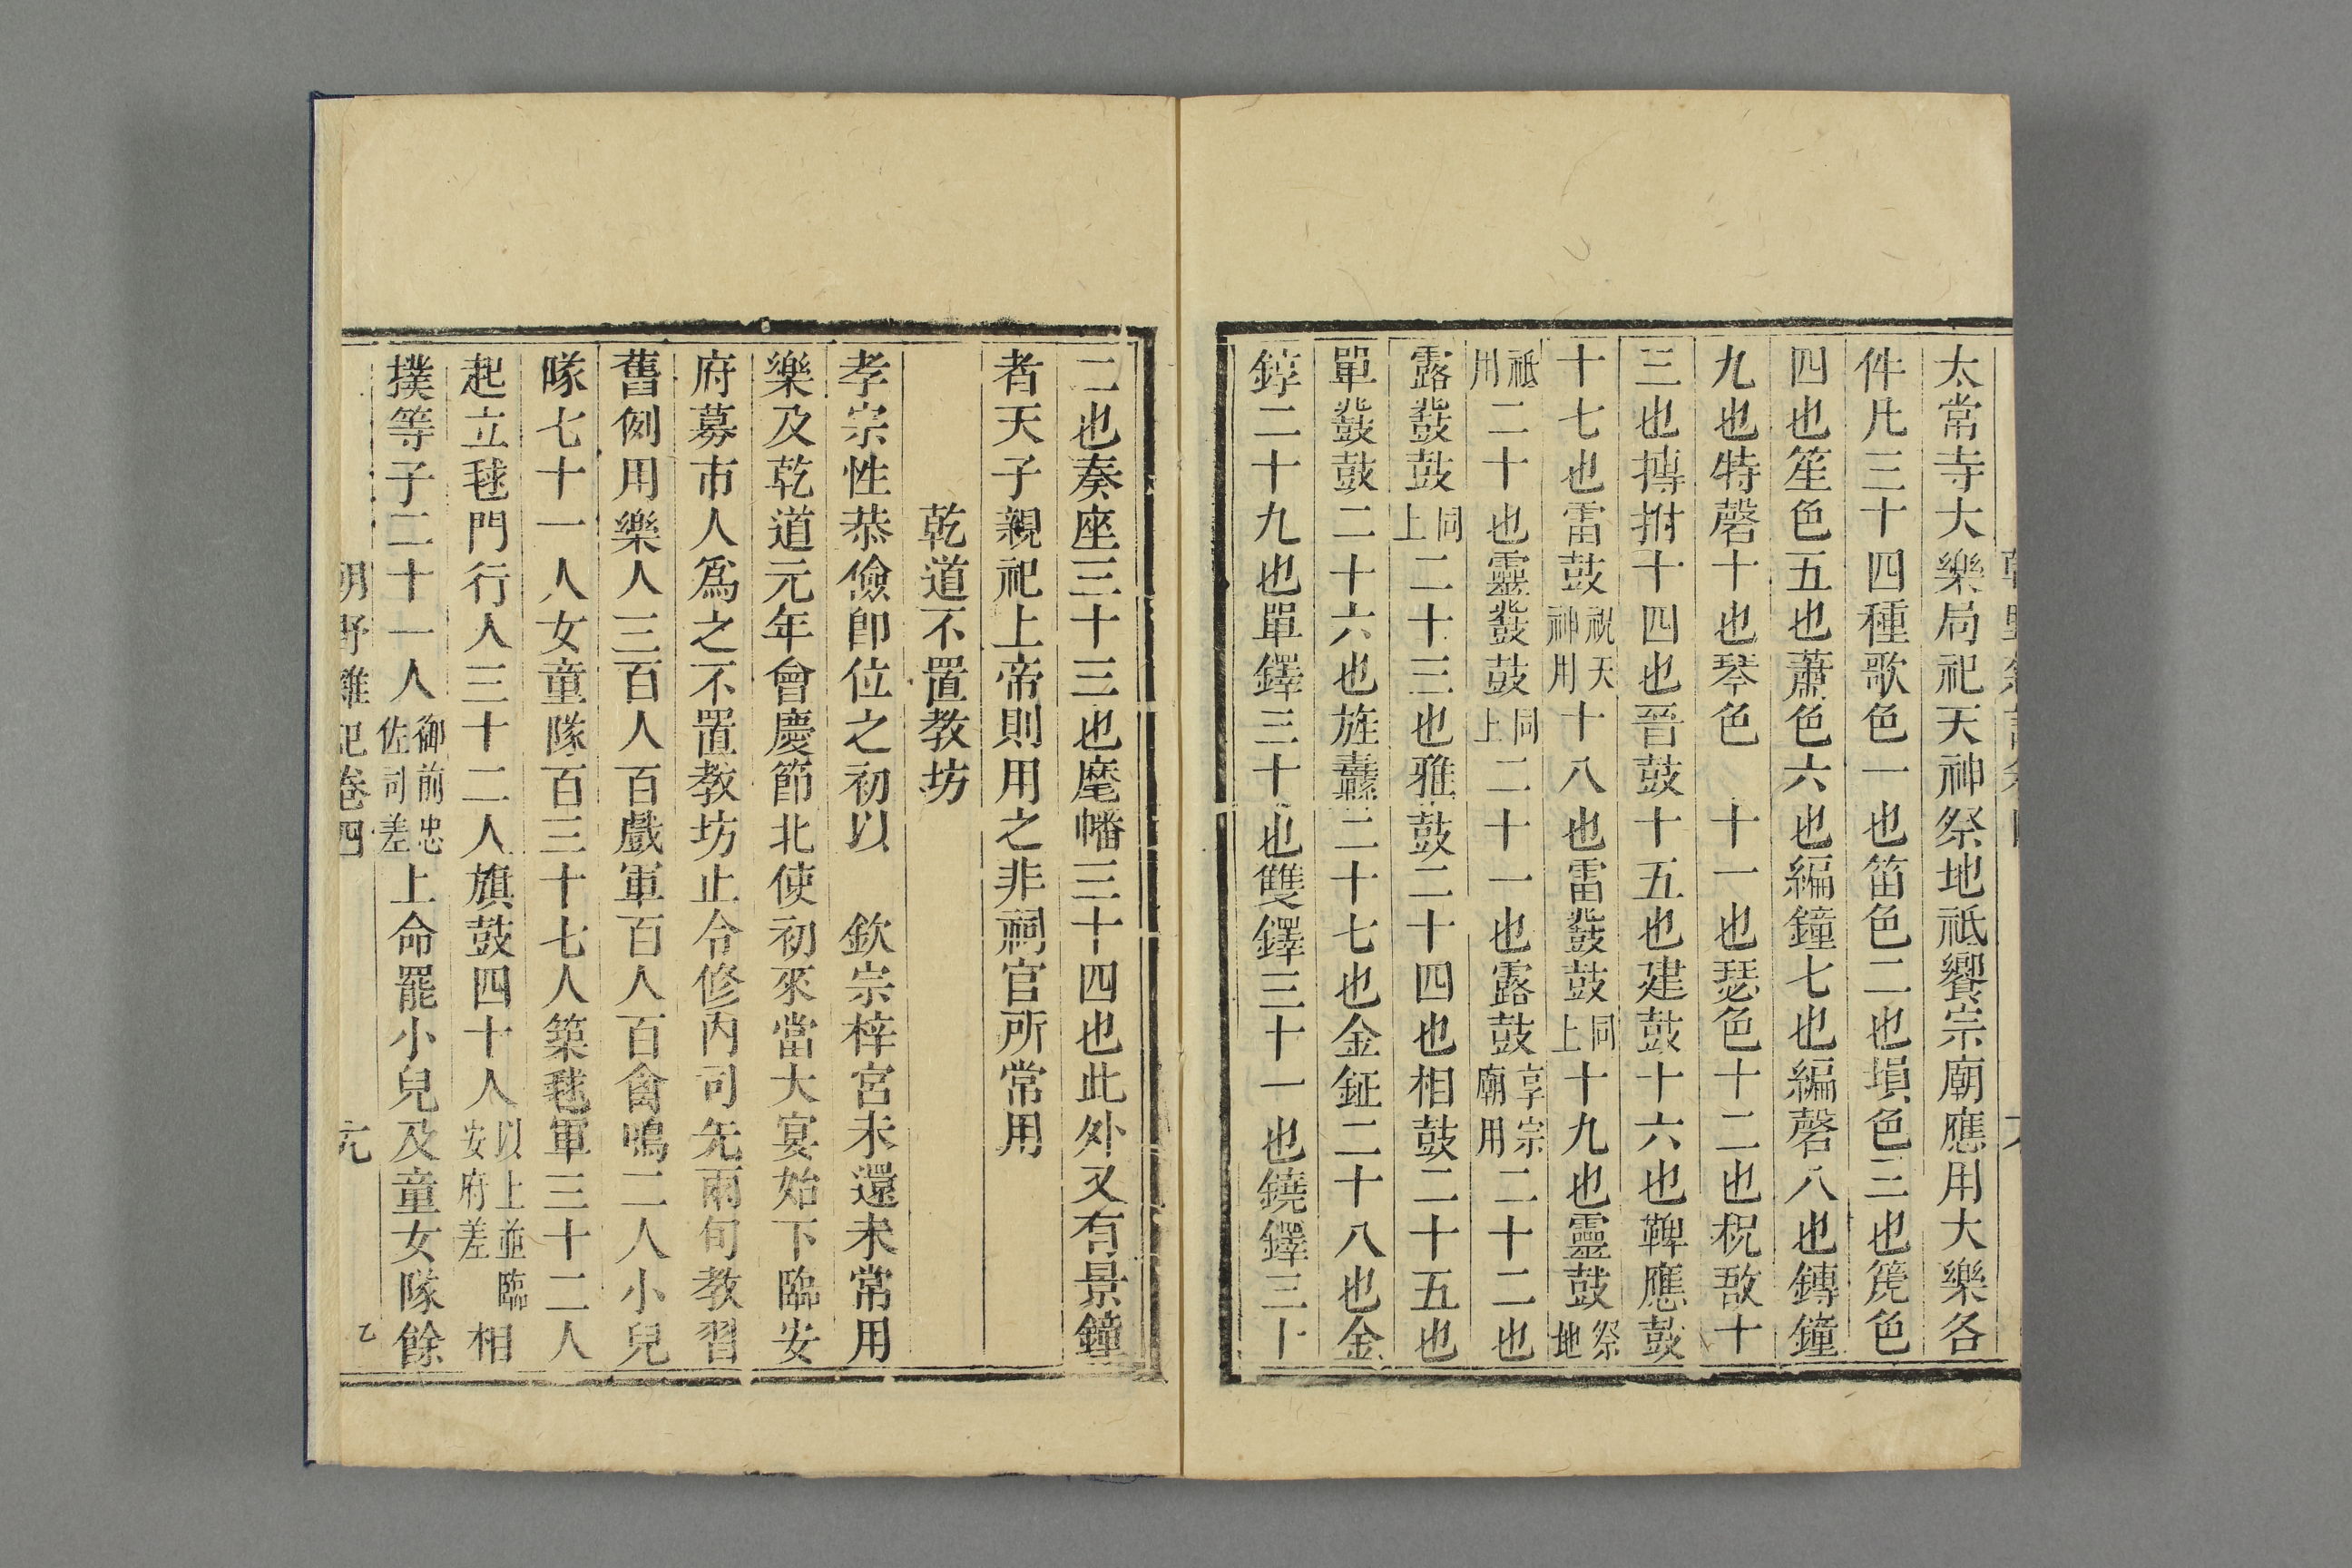 太常寺大樂局祀天神祭地祗饗宗廟應用大樂各
件凡三十四種歌色一也笛色二也塤色三也篪色
四也笙色五也蕭色六也編鐘七也編磬八也鏄鐘
九也特磬十也琴色十一也瑟色十二也柷敔十
三也搏拊十四也晉鼓十五也建鼓十六也鞞應鼓
十七也雷鼓祝天神用十八也雷鼗鼓同上十九也靈鼓祭地
祗用二十也靈鼗鼓同上二十一也露鼓享宗廟用二十二也
露鼗鼓同上二十三也雅鼓二十四也相鼓二十五也
單鼗鼓二十六也旌纛二十七也金鉦二十八也金
錞二十九也單鐸三十也雙鐸三十一也鐃鐸三十
二也奏座三十三也麾幡三十四也此外又有景鐘
者天子親祀上帝則用之非祠官所常用
乾道不置教坊
孝宗性恭儉卽位之初以 欽宗梓宮未還未常用
樂及乾道元年會慶節北使初來當大宴始下臨安
府募市人爲之不置教坊止令修內司先兩旬教習
舊例用樂人三百人百戲軍百人百禽鳴二人小兒
隊七十一人女童隊百三十七人築毬軍三十二人
起立毬門行人三十二人旗鼓四十人以上並臨安府差相
撲等子二十一人御前忠佐司差上命罷小兒及童女隊餘
朝野雜記卷四 元 乙